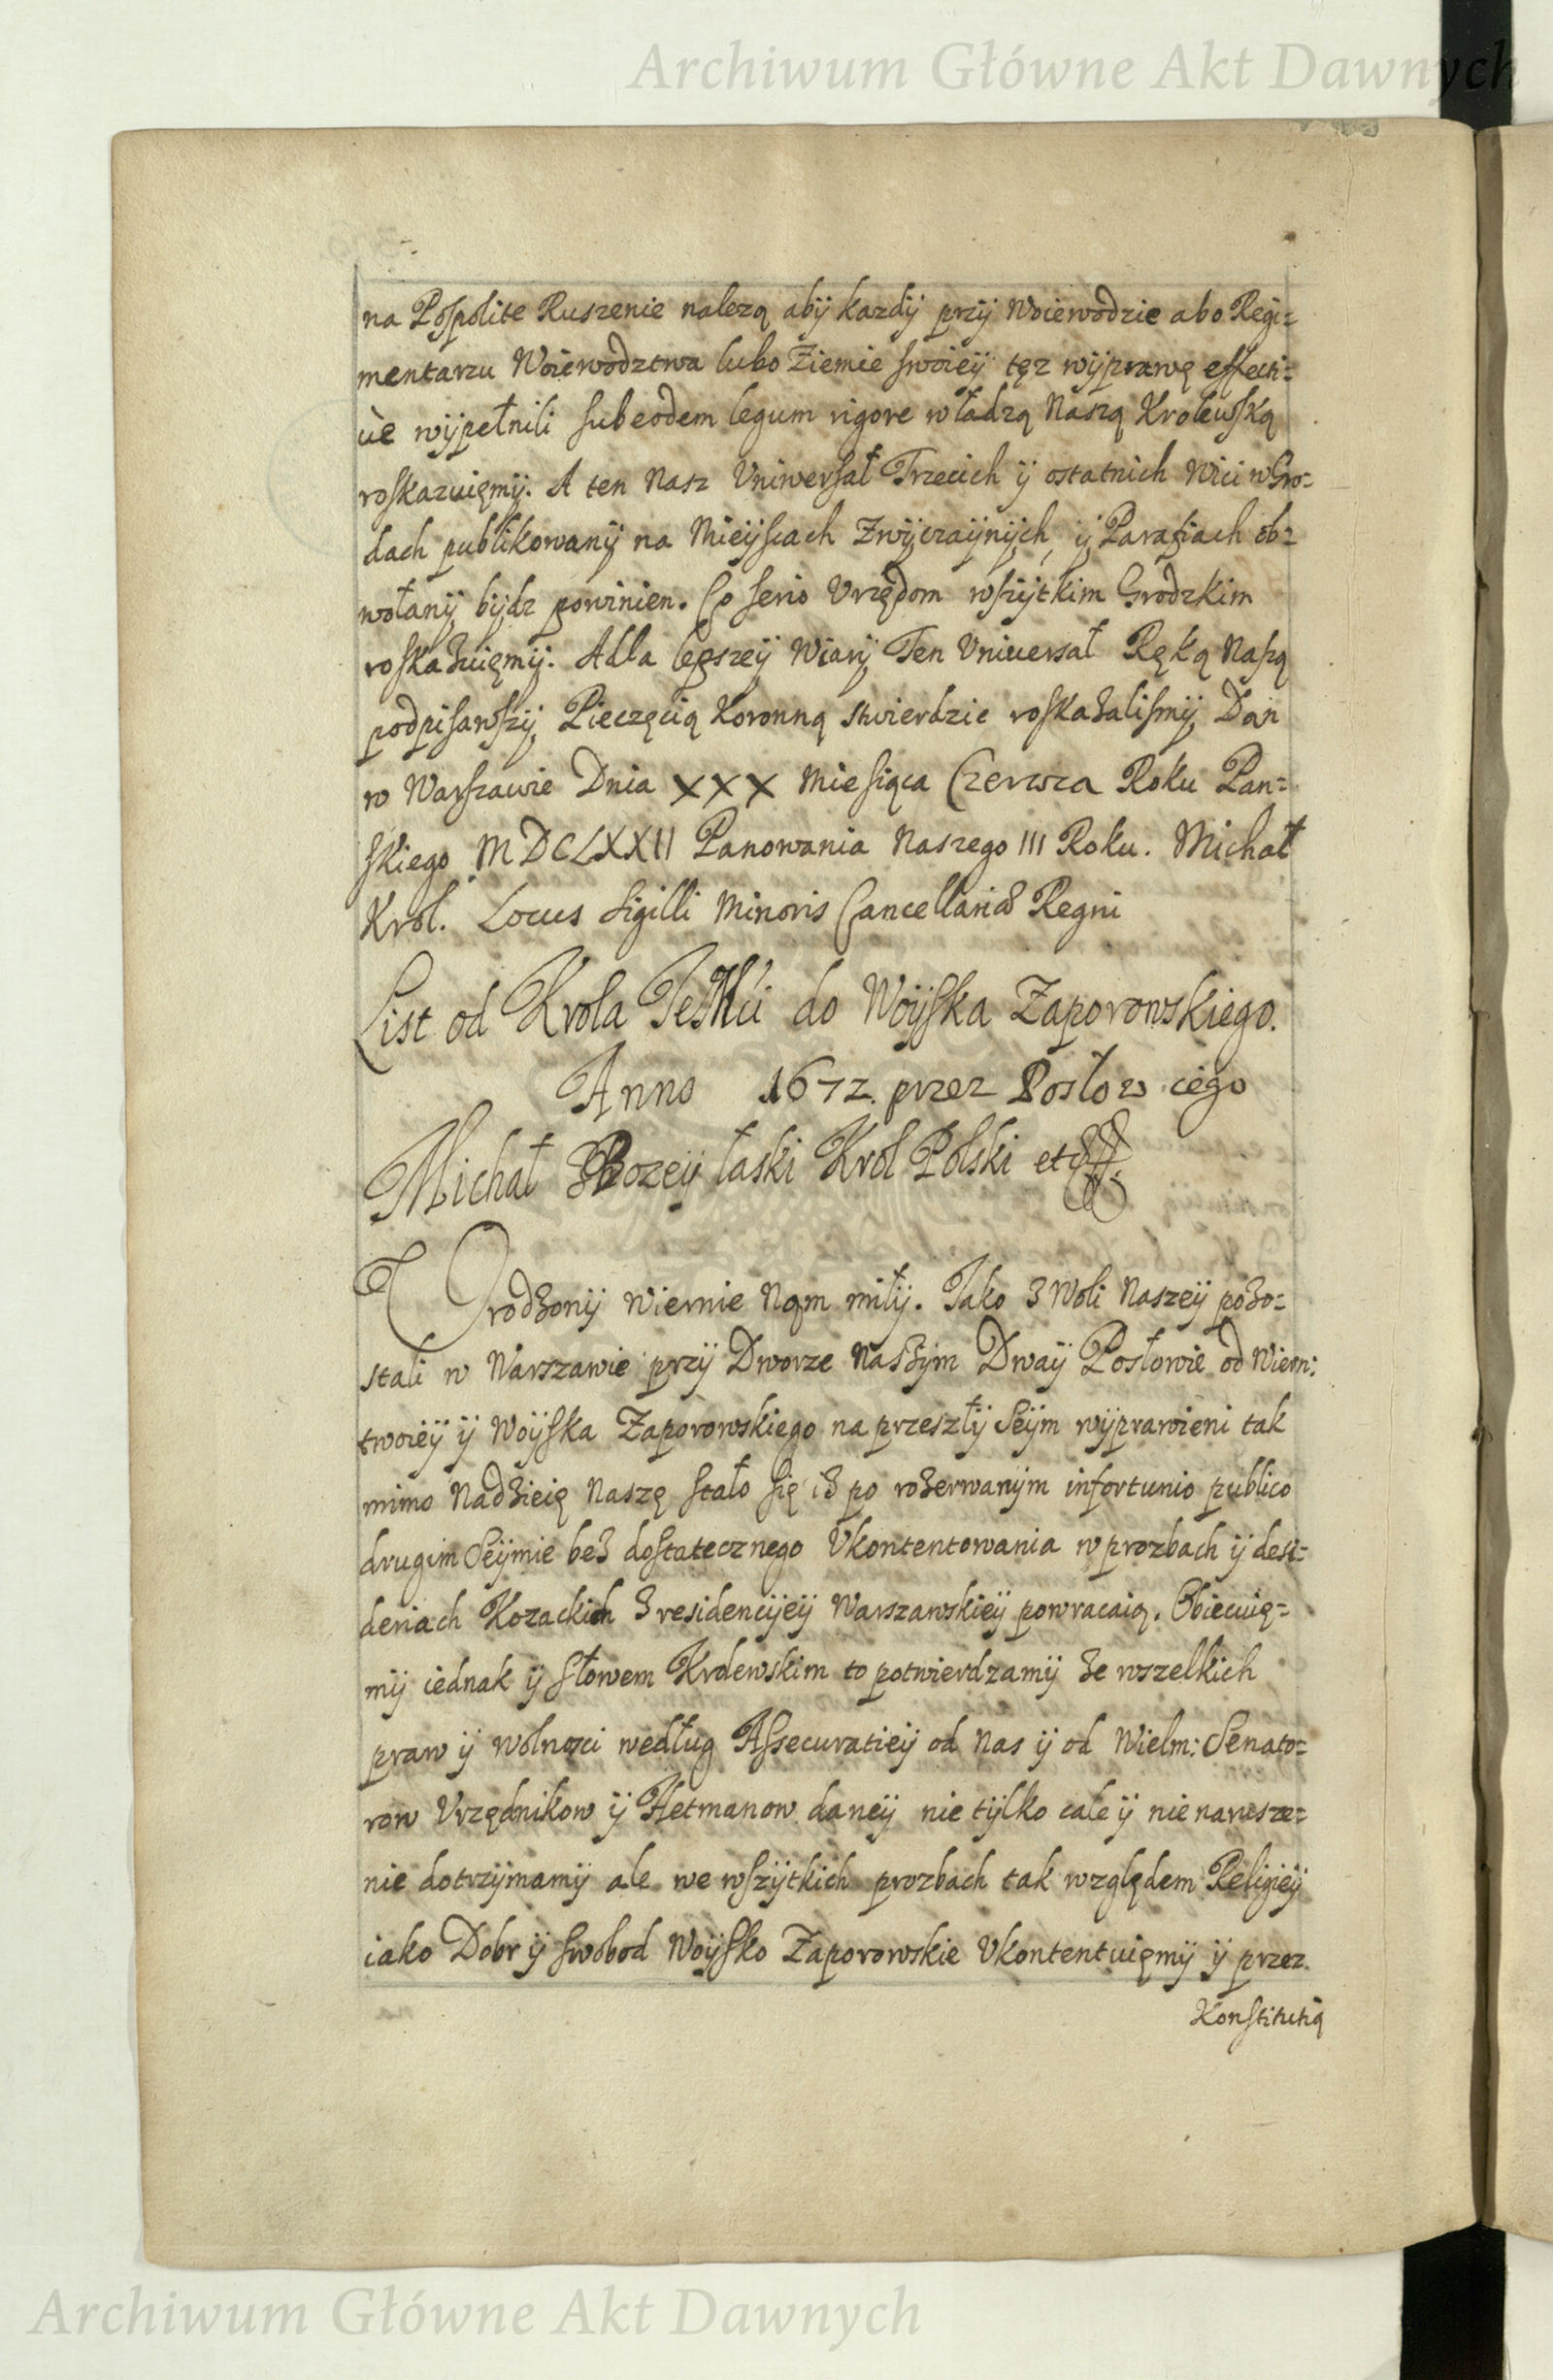 Archiwum Główne Akt Dawnych
na Pospolite Ruszenie nalezą abÿ kazdÿ przÿ Woiewodzie abo Regi=
mentarzu Woiewodztwa lubo Ziemie swoieÿ tęz wÿprawę effecti=
ùe wÿpełnili sub eodem legum rigore władzą Naszą Krolewską
roskazuięmÿ. A ten Nasz Vniwersał Trzecich ÿ ostatnich Wici w Gro=
dach publikowanÿ na Mieÿscach Zwÿczaÿnÿch, ÿ Parafiach ob=
wołanÿ bÿdz powinien. Co serio Vrzędom wszÿtkim Grodzkim
roskazuięmÿ. A dla lepszeÿ Wiarÿ Ten Vniuersał Ręką Naszą
podpisawszÿ Pieczęcią Koronną stwierdzic roskazalismÿ Dan
w Warszawie Dnia XXX Miesiąca Czerwca Roku Pan=
skiego MDCLXXII Panowania Naszego III Roku. Michał
Krol. Locus Sigilli Minoris Cancellariæ Regni
List od Krola JeMći do Woÿska Zaporowskiego.
Anno 1672. przez Posłow iego
Michał z Bozeÿ łaski Krol Polski etc
Vrodzonÿ Wiernie Nąm miłÿ. Jako z Woli Naszeÿ pozo=
stali w Warszawie przÿ Dworze Naszÿm Dwaÿ Posłowie od Wiern:
twoieÿ ÿ Woÿska Zaporowskiego na przeszłÿ Seÿm wÿprawieni tak
mimo Nadzieię Naszę stało się iz po rozerwanÿm infortunio publico
drugim Seÿmie bez dostatecznego Vkontentowania w prozbach ÿ desi=
deriach Kozackich z residencÿeÿ Warszawskieÿ powracaią. Obiecuię=
mÿ iednak ÿ słowem Krolewskim to potwierdzamÿ ze wszelkich
praw ÿ wolnosci według Assecuratieÿ od Nas ÿ od Wielm: Senato=
row Vrzędnikow ÿ Hetmanow daneÿ nie tÿlko cale ÿ nienarusze=
nie dotrzÿmamÿ ale we wszÿtkich prozbach tak względem Religieÿ
iako Dobr ÿ swobod Woÿsko Zaporowskie Vkontentuięmÿ ÿ przez
Konstitutią
Archiwum Główne Akt Dawnych